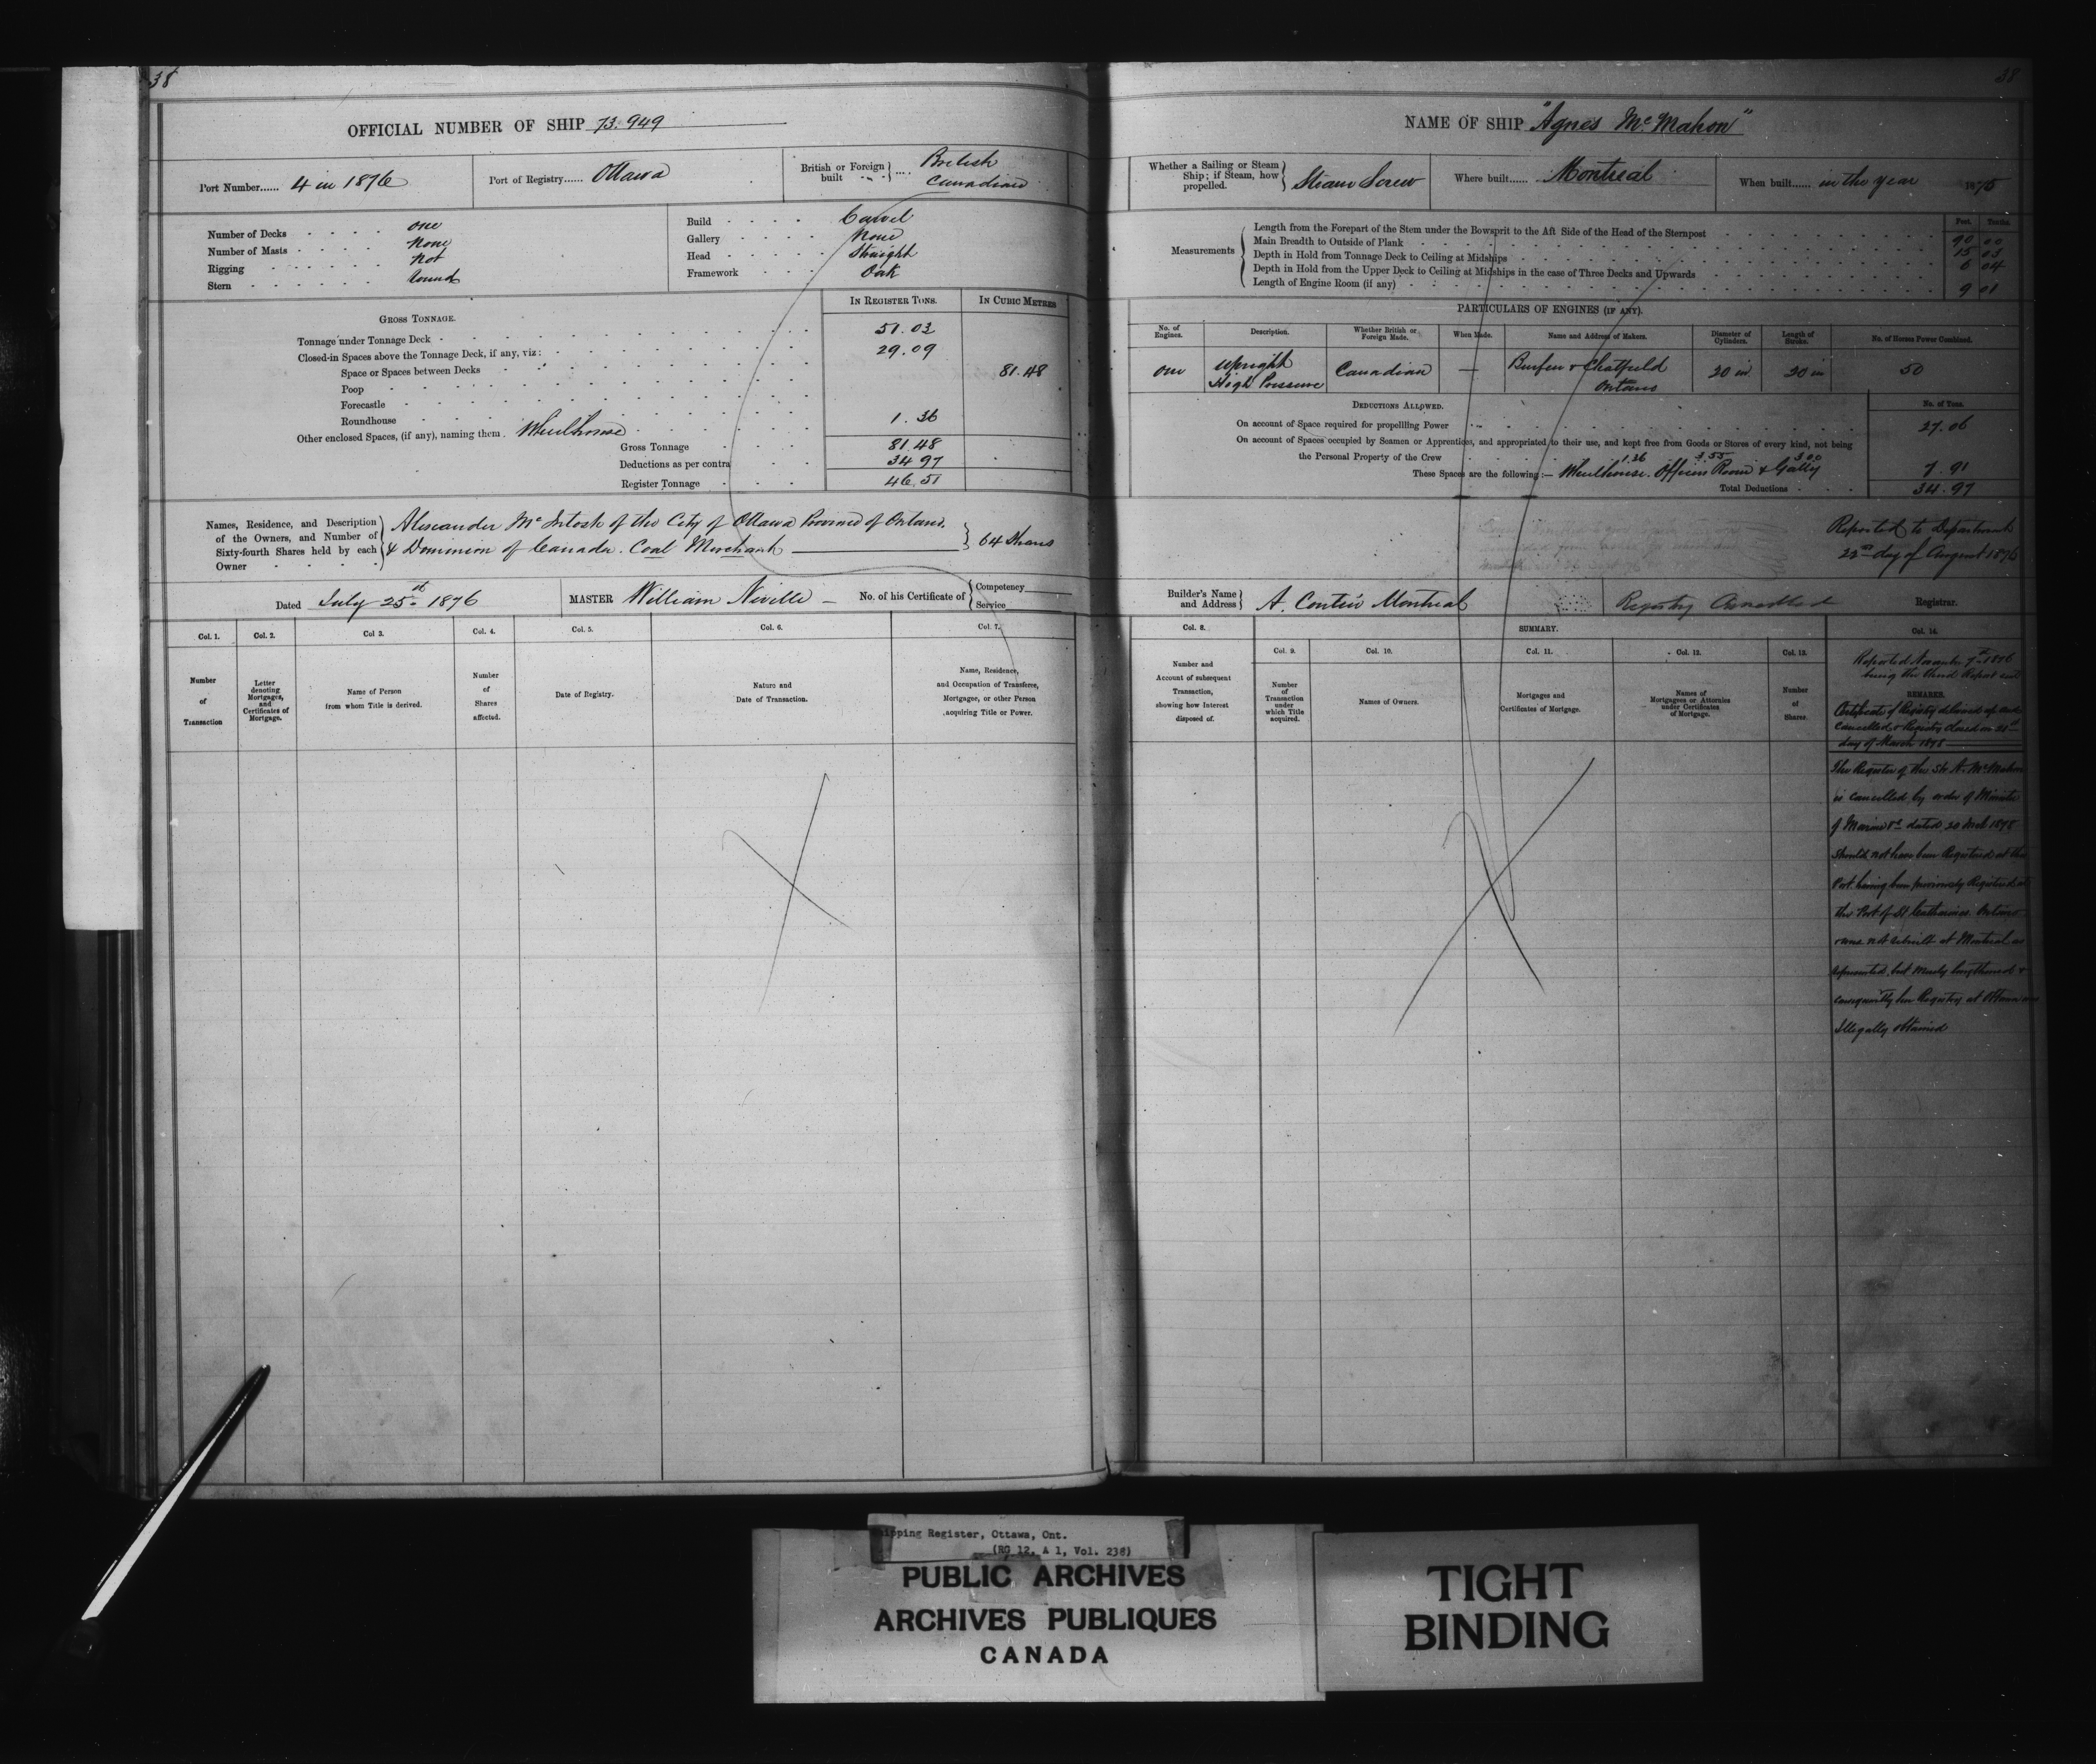 38
OFFICIAL NUMBER OF SHIP 73.949
Port Number...... 4 in 1876
Port of Registry...... Ottawa
British or Foreign built .... British Canadian
Number of Decks one
Number of Masts None
Rigging Not
Stern Round
Build Carvel
Gallery None
Head Straight
Framework Oak
IN REGISTER TONS. IN CUBIC METRES
GROSS TONNAGE.
Tonnage under Tonnage Deck 51.03
Closed-in Spaces above the Tonnage Deck, if any, viz: 29.09
Space or Spaces between Decks 81.48
Poop
Forecastle
Roundhouse 1.36
Other enclosed Spaces, (if any), naming them. Wheelhouse
Gross Tonnage 81.48
Deductions as per contra 34 97
Register Tonnage 46.51
Names, Residence, and Description of the Owners, and Number of Sixty-fourth Shares held by each Owner
Alexander McIntosh of the City of Ottawa Province of Ontario
& Dominion of Canada. Coal Merchant 64 Shares
Dated July 25th 1876
MASTER William Neville
No. of his Certificate of Competency Service
Col. 1. Col. 2. Col 3. Col. 4. Col. 5. Col. 6. Col. 7.
Number of Transaction
Letter denoting Mortgages, and Certificates of Mortgage.
Name of Person from whom Title is derived.
Number of Shares affected.
Date of Registry.
Nature and Date of Transaction.
Name, Residence, and Occupation of Transferee, Mortgagee, or other Person acquiring Title or Power.
38
NAME OF SHIP "Agnes McMahon"
Whether a Sailing or Steam Ship; if Steam, how propelled. Steam Screw
Where built...... Montreal
When built...... in the year 1875
Measurements
Feet. Tenths.
Length from the Forepart of the Stem under the Bowsprit to the Aft Side of the Head of the Sternpost 90 00
Main Breadth to Outside of Plank 15 03
Depth in Hold from Tonnage Deck to Ceiling at Midships 6 04
Depth in Hold from the Upper Deck to Ceiling at Midships in the case of Three Decks and Upwards
Length of Engine Room (if any) 9 01
PARTICULARS OF ENGINES (IF ANY).
No. of Engines. Description. Whether British or Foreign Made. When Made. Name and Address of Makers. Diameter of Cylinders. Length of Stroke. No. of Horses Power Combined.
One Upright High Pressure Canadian — & Chatfield Ontario 20 in 20 in 50
DEDUCTIONS ALLOWED. No. of Tons.
On account of Space required for propelling Power 27.06
On account of Spaces occupied by Seamen or Apprentices, and appropriated to their use, and kept free from Goods or Stores of every kind, not being
the Personal Property of the Crew 1.36 3.55 3.00
These Spaces are the following:— Wheelhouse. Officers Room & Gally 7.91
Total Deductions 34.97
Reported to Department
22nd day of August 1876
Builder's Name and Address A. Montreal
Registry Cancelled
Registrar.
Col. 8. SUMMARY. Col. 14.
Col. 9. Col. 10. Col. 11. Col. 12. Col. 13.
Number and Account of subsequent Transaction, showing how Interest disposed of.
Number of Transaction under which Title acquired.
Names of Owners.
Mortgages and Certificates of Mortgage.
Names of Mortgagees or Attornies under Certificates of Mortgage.
Number of Shares.
Reported November 7th 1876
being the third Report
REMARKS.
Certificate of Registry delivered up and
Cancelled & Registry closed on 21st
day of March 1878
The Register of the Str A. McMahon
is cancelled by order of Minister
of Marine &c dated 20 Mch 1878
Should not have been Registered at this
Port having been previously Registered at
the Port of St Catharines Ontario
& was not rebuilt at Montreal as
represented, but merely lengthened &
consequently her Registry at Ottawa was
Illegally obtained
Shipping Register, Ottawa, Ont.
(RG 12, A 1, Vol. 238)
PUBLIC ARCHIVES
ARCHIVES PUBLIQUES
CANADA
TIGHT
BINDING